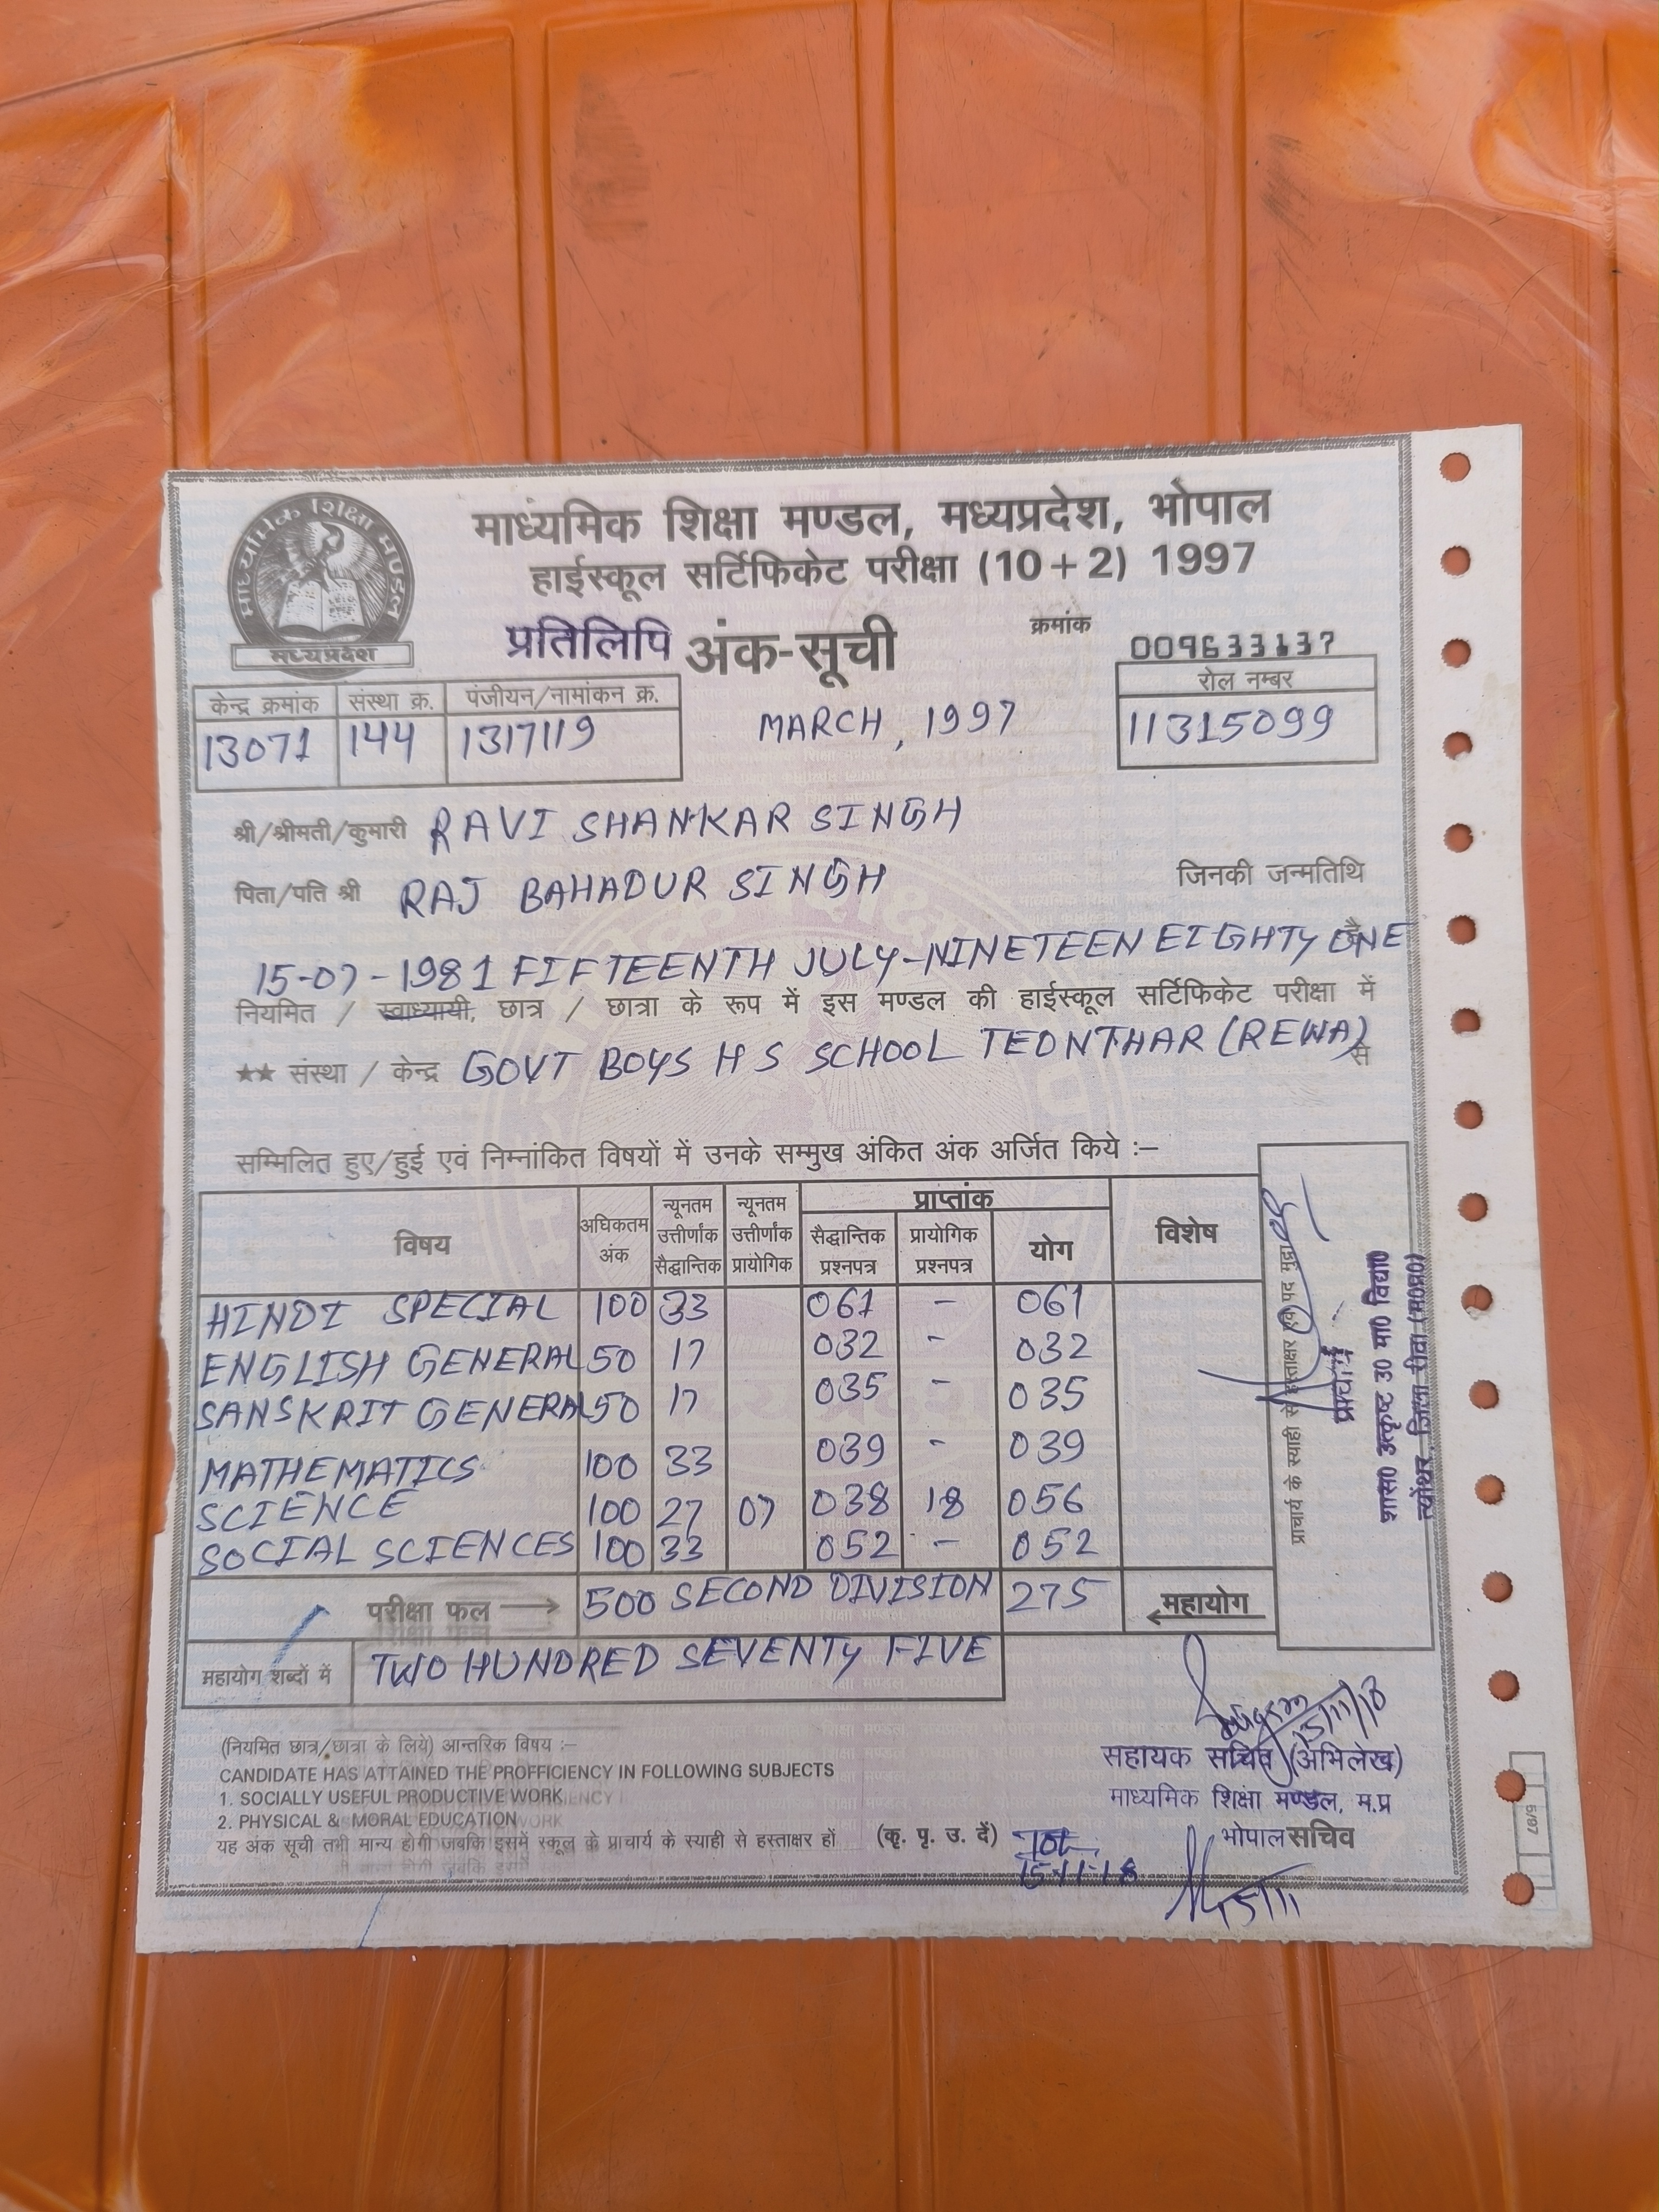 माध्यमिक शिक्षा मण्डल
मध्यप्रदेश
माध्यमिक शिक्षा मण्डल, मध्यप्रदेश, भोपाल
हाईस्कूल सर्टिफिकेट परीक्षा (10+2) 1997
प्रतिलिपि अंक-सूची
क्रमांक
009633137
केन्द्र क्रमांक संस्था क्र. पंजीयन/नामांकन क्र.
13071 144 1317119
MARCH, 1997
रोल नम्बर
11315099
श्री/श्रीमती/कुमारी RAVI SHANKAR SINGH
पिता/पति श्री RAJ BAHADUR SINGH जिनकी जन्मतिथि
15-07-1981 FIFTEENTH JULY-NINETEEN EIGHTY ONE है
नियमित / स्वाध्यायी, छात्र / छात्रा के रूप में इस मण्डल की हाईस्कूल सर्टिफिकेट परीक्षा में
★★ संस्था / केन्द्र GOVT BOYS H S SCHOOL TEONTHAR (REWA) से
सम्मिलित हुए/हुई एवं निम्नांकित विषयों में उनके सम्मुख अंकित अंक अर्जित किये :–
विषय अधिकतम अंक न्यूनतम उत्तीर्णांक सैद्धान्तिक न्यूनतम उत्तीर्णांक प्रायोगिक प्राप्तांक विशेष
सैद्धान्तिक प्रश्नपत्र प्रायोगिक प्रश्नपत्र योग
HINDI SPECIAL 100 33 061 - 061
ENGLISH GENERAL 50 17 032 - 032
SANSKRIT GENERAL 50 17 035 - 035
MATHEMATICS 100 33 039 - 039
SCIENCE 100 27 07 038 18 056
SOCIAL SCIENCES 100 33 052 - 052
परीक्षा फल → 500 SECOND DIVISION 275 ←महायोग
महायोग शब्दों में TWO HUNDRED SEVENTY FIVE
प्राचार्य के स्याही से हस्ताक्षर एवं पद मुद्रा
प्राचार्य
शास0 उत्कृष्ट उ0 मा0 विद्या0
त्योंथर, जिला रीवा (म0प्र0)
(नियमित छात्र/छात्रा के लिये) आन्तरिक विषय :–
CANDIDATE HAS ATTAINED THE PROFFICIENCY IN FOLLOWING SUBJECTS
1. SOCIALLY USEFUL PRODUCTIVE WORK
2. PHYSICAL & MORAL EDUCATION
यह अंक सूची तभी मान्य होगी जबकि इसमें स्कूल के प्राचार्य के स्याही से हस्ताक्षर हों (कृ. पृ. उ. दें)
15-11-18
15/11/18
सहायक सचिव (अभिलेख)
माध्यमिक शिक्षा मण्डल, म.प्र
भोपाल सचिव
5/97